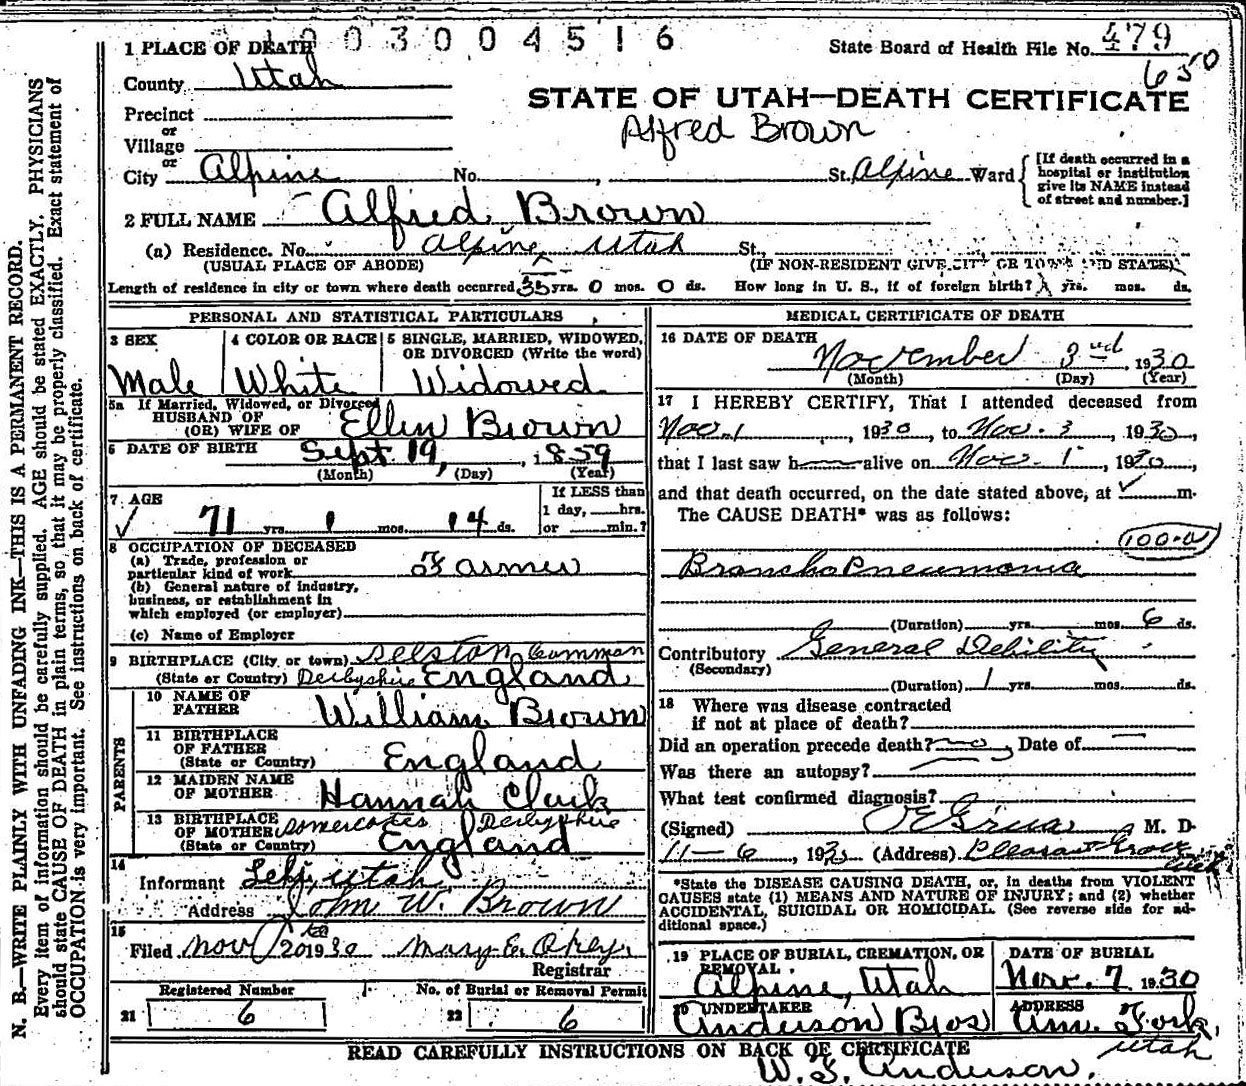 1003004516
State Board of Health File No. 479
650
1 PLACE OF DEATH
County Utah
STATE OF UTAH—DEATH CERTIFICATE
Alfred Brown
Precinct
or
Village
or
City Alpine No. , St. Alpine Ward
[If death occurred in a hospital or institution give its NAME instead of street and number.]
2 FULL NAME Alfred Brown
(a) Residence. No. Alpine, Utah St.,
(USUAL PLACE OF ABODE) (IF NON-RESIDENT GIVE CITY OR TOWN AND STATE)
Length of residence in city or town where death occurred 35 yrs. 0 mos. 0 ds. How long in U. S., if of foreign birth? yrs. mos. ds.
PERSONAL AND STATISTICAL PARTICULARS
3 SEX 4 COLOR OR RACE 5 SINGLE, MARRIED, WIDOWED,
OR DIVORCED (Write the word)
Male White Widowed
5a If Married, Widowed, or Divorced
HUSBAND OF
(OR) WIFE OF Ellen Brown
6 DATE OF BIRTH Sept. 19, , 1859
(Month) (Day) (Year)
7 AGE
71 yrs. 1 mos. 14 ds.
If LESS than
1 day, hrs.
or min.?
8 OCCUPATION OF DECEASED
(a) Trade, profession or
particular kind of work Farmer
(b) General nature of industry,
business, or establishment in
which employed (or employer)
(c) Name of Employer
9 BIRTHPLACE (City or town) Selston Common
(State or Country) Derbyshire England
PARENTS
10 NAME OF
FATHER William Brown
11 BIRTHPLACE
OF FATHER
(State or Country) England
12 MAIDEN NAME
OF MOTHER Hannah Clark
13 BIRTHPLACE
OF MOTHER Somercotes Derbyshire
(State or Country) England
14
Informant Lehi, Utah
Address John W. Brown
15
Filed Nov 20 1930 Mary E.
Registrar
Registered Number No. of Burial or Removal Permit
21 6 22 6
MEDICAL CERTIFICATE OF DEATH
16 DATE OF DEATH
November 3rd 1930
(Month) (Day) (Year)
17 I HEREBY CERTIFY, That I attended deceased from
Nov. 1 , 1930, to Nov. 3, 1930,
that I last saw h alive on Nov. 1, 1930,
and that death occurred, on the date stated above, at m.
The CAUSE DEATH* was as follows:
100-a
Broncho Pneumonia
(Duration) yrs. mos. 6 ds.
Contributory General Debility
(Secondary)
(Duration) 1 yrs. mos. ds.
18 Where was disease contracted
if not at place of death?
Did an operation precede death? no, Date of
Was there an autopsy?
What test confirmed diagnosis?
(Signed) O E Grua M. D.
11-6, 1930 (Address) Pleasant Grove
Utah
*State the DISEASE CAUSING DEATH, or, in deaths from VIOLENT
CAUSES state (1) MEANS AND NATURE OF INJURY; and (2) whether
ACCIDENTAL, SUICIDAL OR HOMICIDAL. (See reverse side for ad-
ditional space.)
19 PLACE OF BURIAL, CREMATION, OR
REMOVAL. DATE OF BURIAL
Alpine, Utah Nov. 7 1930
20 UNDERTAKER ADDRESS
Anderson Bros Am. Fork,
Utah
READ CAREFULLY INSTRUCTIONS ON BACK OF CERTIFICATE
W. S. Anderson.
N. B.—WRITE PLAINLY WITH UNFADING INK—THIS IS A PERMANENT RECORD.
Every item of information should be carefully supplied. AGE should be stated EXACTLY. PHYSICIANS
should state CAUSE OF DEATH in plain terms, so that it may be properly classified. Exact statement of
OCCUPATION is very important. See instructions on back of certificate.